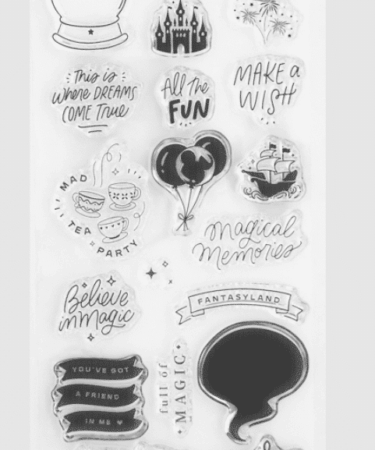 This is
Where DREAMS
COME True
All The
FUN
MAKE a
WISH
MAD
TEA PARTY
magical
memories
Believe
in magic
FANTASYLAND
YOU'VE GOT
A FRIEND
IN ME
full of
MAGIC